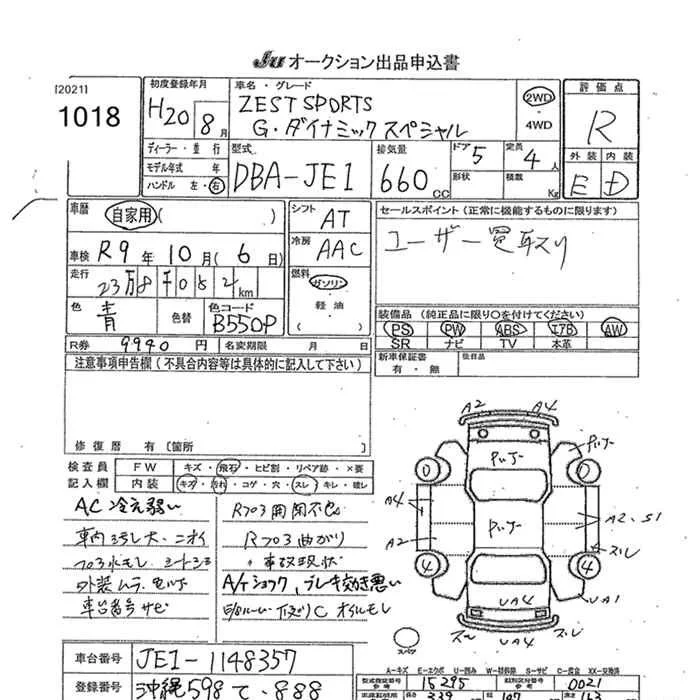 Ju オークション出品申込書
[2021]
1018
初度登録年月
H20 8月
車名・グレード
ZEST SPORTS
G・ダイナミックスペシャル
2WD
・
4WD
評価点
R
外装 内装
E D
ディーラー・並行
モデル年式 年
ハンドル 左・右
型式
DBA-JE1
排気量
660 CC
ドア 5
定員 4人
形状
積載 Kg
車歴
自家用( )
車検 R9年10月(6日)
走行
23万8千082km
色 青
色替
色コード
B550P
シフト AT
冷房 AAC
燃料
ガソリン
・
軽油
・
( )
セールスポイント(正常に機能するものに限ります)
ユーザー買取り
装備品(純正品に限り○を付けてください)
PS PW ABS エアB AW
SR ナビ TV 本革
新車保証書
有・無
R券 9940円
名変期限 月 日
注意事項申告欄(不具合内容等は具体的に記入して下さい)
修復歴 有[箇所 ]
検査員
記入欄
FW キズ・飛石・ヒビ割・リペア跡・×要
内装 キズ・汚れ・コゲ・穴・スレ・キレ・破レ
AC冷え弱い
車内汚レ大、ニオイ
外装ムラ
車台番号サビ
Rフロ3開閉不良
Rフロ3曲がり
事故現状
A/Tショック、ブレーキ効き悪い
オイルモレ
A2 A4
A4
A2
A2、S1
スレ
UA4
UA4
UA1
スレ
スレ
スペア
0 0
4 4
車台番号 JE1-1148357
登録番号 沖縄598て・888
A-キズ E-エクボ U-凹み W-修理跡 S-サビ C-腐食 XX-交換済
型式指定番号 15295
類別区分番号 0021
長さ 339